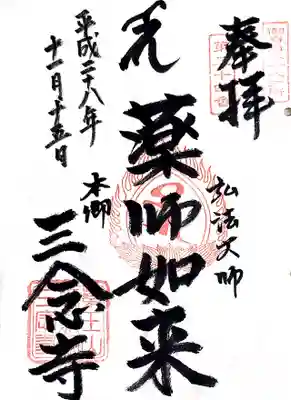 奉拝
弘法大師
薬師如来
本郷
三念寺
平成二十八年
十一月十五日